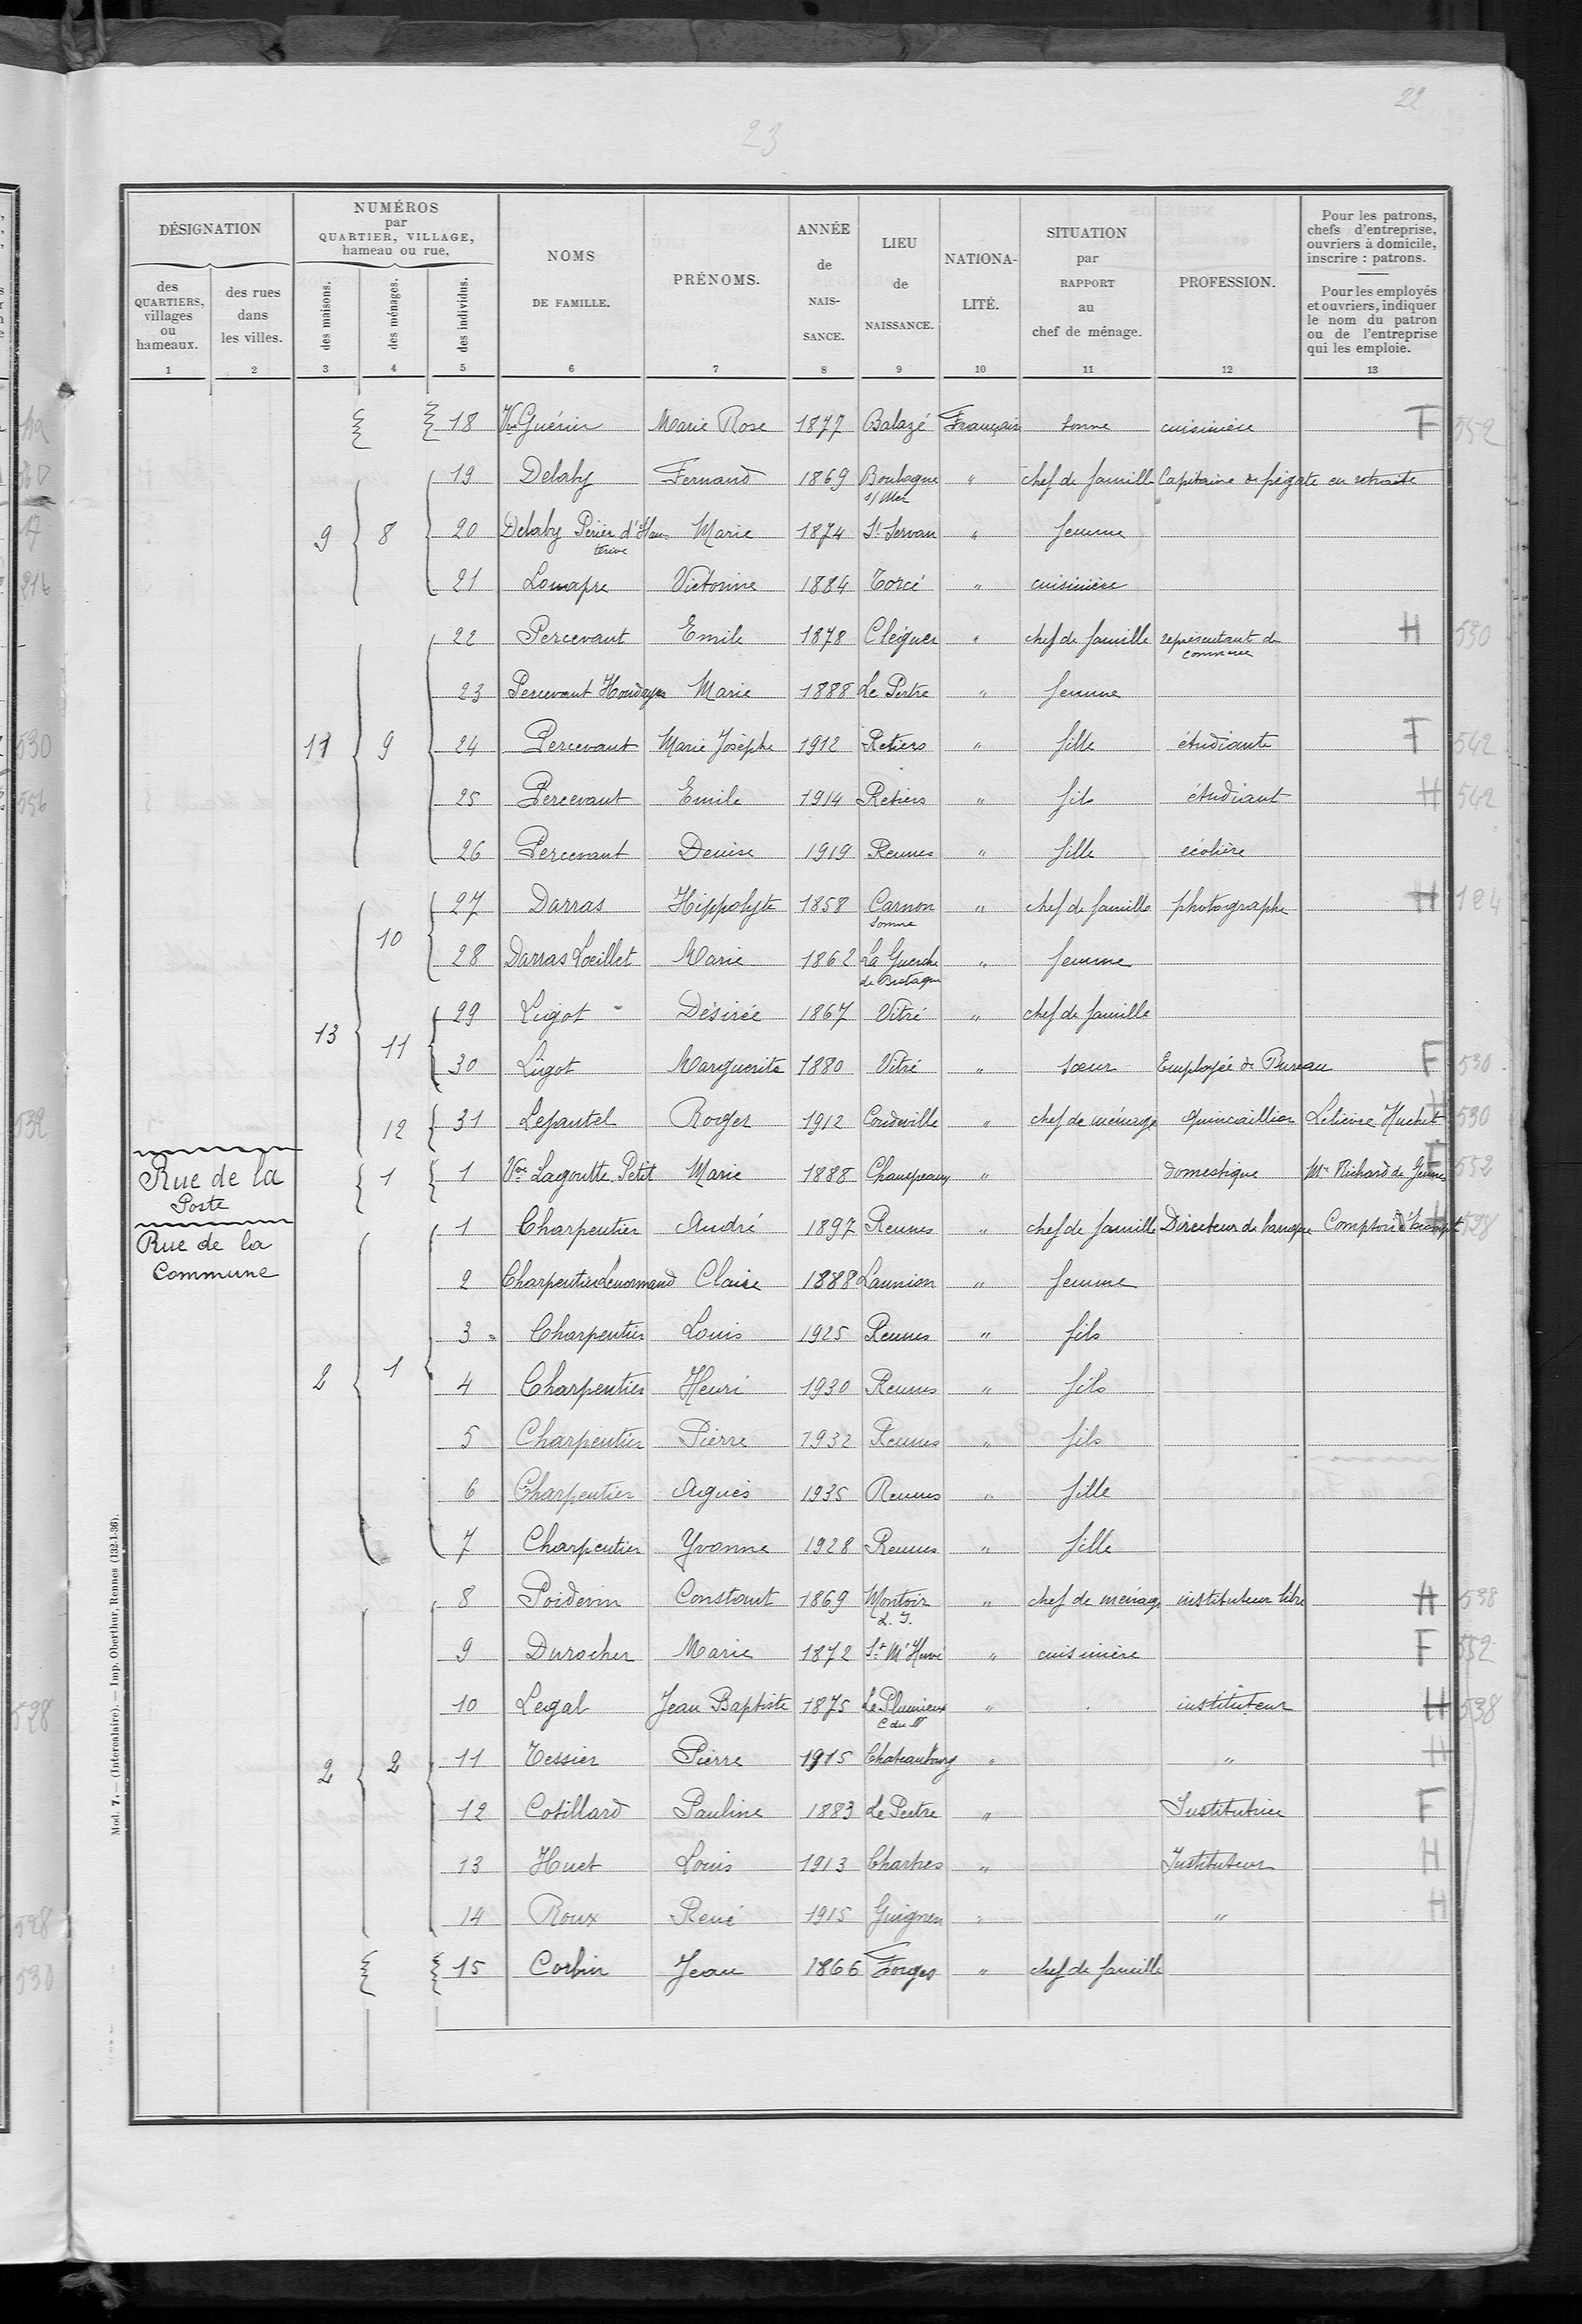 22
23
DÉSIGNATION
NUMÉROS
par
QUARTIER, VILLAGE,
hameau ou rue,
des QUARTIERS, villages ou hameaux.
des rues dans les villes.
des maisons.
des ménages.
des individus.
NOMS DE FAMILLE.
PRÉNOMS.
ANNÉE de NAIS- SANCE.
LIEU de NAISSANCE.
NATIONA- LITÉ.
SITUATION par RAPPORT au chef de ménage.
PROFESSION.
Pour les patrons,
chefs d'entreprise,
ouvriers à domicile,
inscrire : patrons.
Pour les employés
et ouvriers, indiquer
le nom du patron
ou de l'entreprise
qui les emploie.
1 2 3 4 5 6 7 8 9 10 11 12 13
18 Vve Guérin Marie Rose 1877 Balazé Français bonne cuisinière F 552
19 Delaby Fernand 1869 Boulogne s/Mer " chef de famille Capitaine de frégate en retraite
9 8 20 Delaby Périer d'Hauterive Marie 1874 St Servan " femme
21 Victorine 1884 Torcé " cuisinière
22 Percevant Emile 1878 Cléguer " chef de famille représentant de commerce H 530
23 Percevant Marie 1888 Le Pertre " femme
11 9 24 Percevant Marie Josèphe 1912 Retiers " fille étudiante F 542
25 Percevant Emile 1914 Retiers " fils étudiant H 542
26 Percevant Denise 1919 Rennes " fille écolière
10 27 Darras Hippolyte 1858 Carnon Somme " chef de famille photographe H 124
28 Darras Loeillet Marie 1862 La Guerche de Bretagne " femme
13 11 29 Ligot Désirée 1867 Vitré " chef de famille
30 Ligot Marguerite 1880 Vitré " soeur Employée de Bureau F 530
12 31 Lepautel Roger 1912 " chef de ménage quincaillier Lelièvre Huchet H 530
Rue de la
Poste
1 1 Vve Lagoutte Petit Marie 1888 Champeaux " domestique Mr Richard de Gennes F 552
Rue de la
Commune
1 Charpentier André 1897 Rennes " chef de famille Directeur de banque Comptoir d'Escompte H 598
2 Charpentier Lenormand Claire 1888 Lannion " femme
3 Charpentier Louis 1925 Rennes " fils
2 1 4 Charpentier Henri 1930 Rennes " fils
5 Charpentier Pierre 1932 Rennes " fils
6 Charpentier Agnès 1935 Rennes " fille
7 Charpentier Yvonne 1928 Rennes " fille
8 Poidevin Constant 1869 Montoir L. I. " chef de ménage instituteur libre H 538
9 Durocher Marie 1872 St M'Hervé " cuisinière F 552
10 Legal Jean Baptiste 1875 Le Plumieux C du N " instituteur H 538
2 2 11 Tessier Pierre 1915 Chateaubourg " " H
12 Cotillard Pauline 1883 Le Pertre " Institutrice F
13 Huet Louis 1913 Chartres " Instituteur H
14 Roux René 1915 Guignen " " H
15 Corbin Jean 1866 Forges " chef de famille
Mod. 7. — (Intercalaire). — Imp. Oberthur, Rennes (132-1-36).
530
556
532
528
528
530